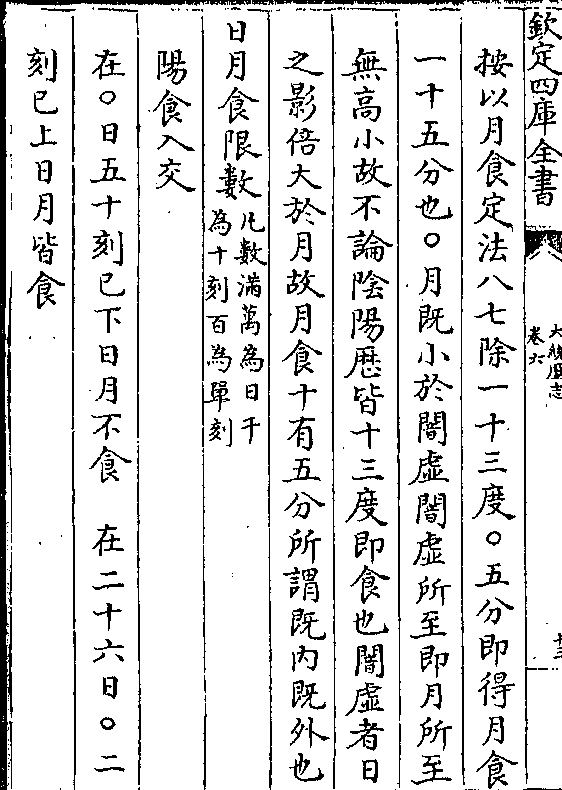 欽定四庫全書
大統厯志
卷六
十三
按以月食定法八七除一十三度〇五分即得月食
一十五分也〇月既小於闇虛闇虛所至即月所至
無高小故不論陰陽厯皆十三度即食也闇虛者日
之影倍大於月故月食十有五分所謂既内既外也
日月食限數凡數滿萬為日千
為十刻百為單刻
陽食入交
在〇日五十刻已下日月不食　在二十六日〇二
刻已上日月皆食